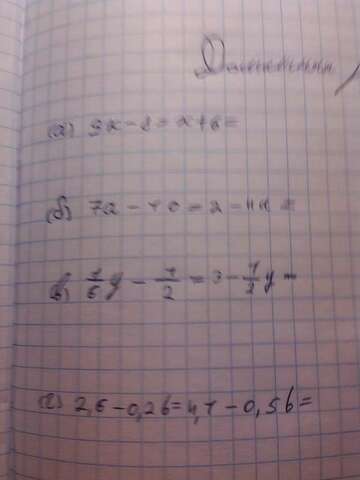 а) 3x - 8 = x + 6 =
б) 7a - 10 = 2 - 4a =
в) 1/6 y - 1/2 = 3 - 1/2 y =
г) 2,6 - 0,2b = 4,1 - 0,5b =